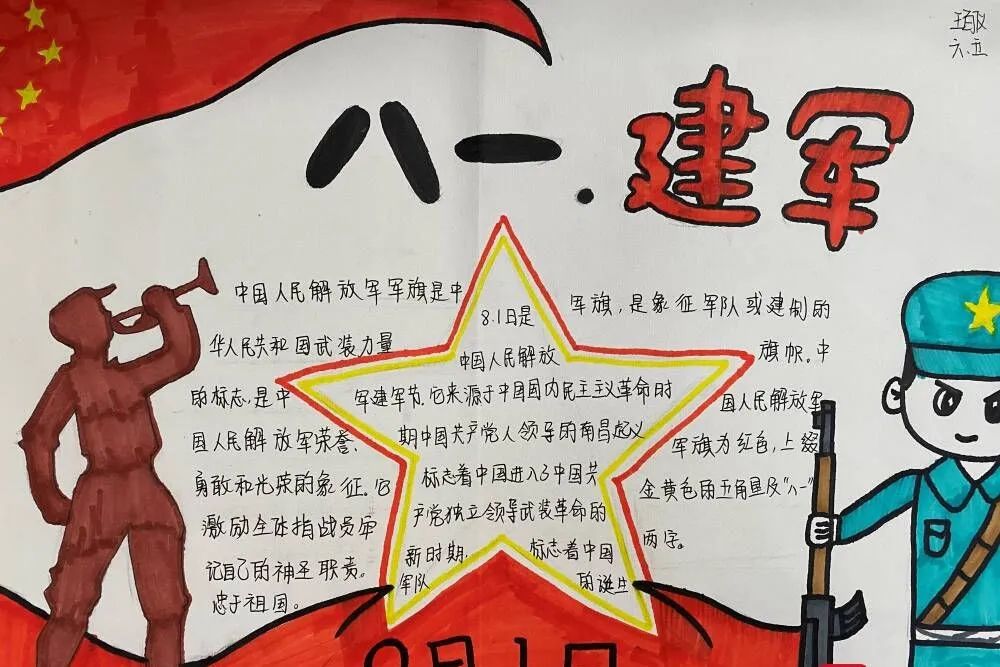 六.五
八一.建军
中国人民解放军军旗是中
华人民共和国武装力量
的标志,是中
国人民解放军荣誉、
勇敢和光荣的象征。它
激励全体指战员牢
记自己的神圣职责。
忠于祖国。
8.1日是
中国人民解放
军建军节,它来源于中国国内民主主义革命时
期中国共产党人领导的南昌起义
标志着中国进入了中国共
产党独立领导武装革命的
新时期. 标志着中国
军队 的诞生
军旗,是象征军队或建制的
旗帜。中
国人民解放军
军旗为红色,上缀
金黄色的五角星及"八一"
两字。
8月1日